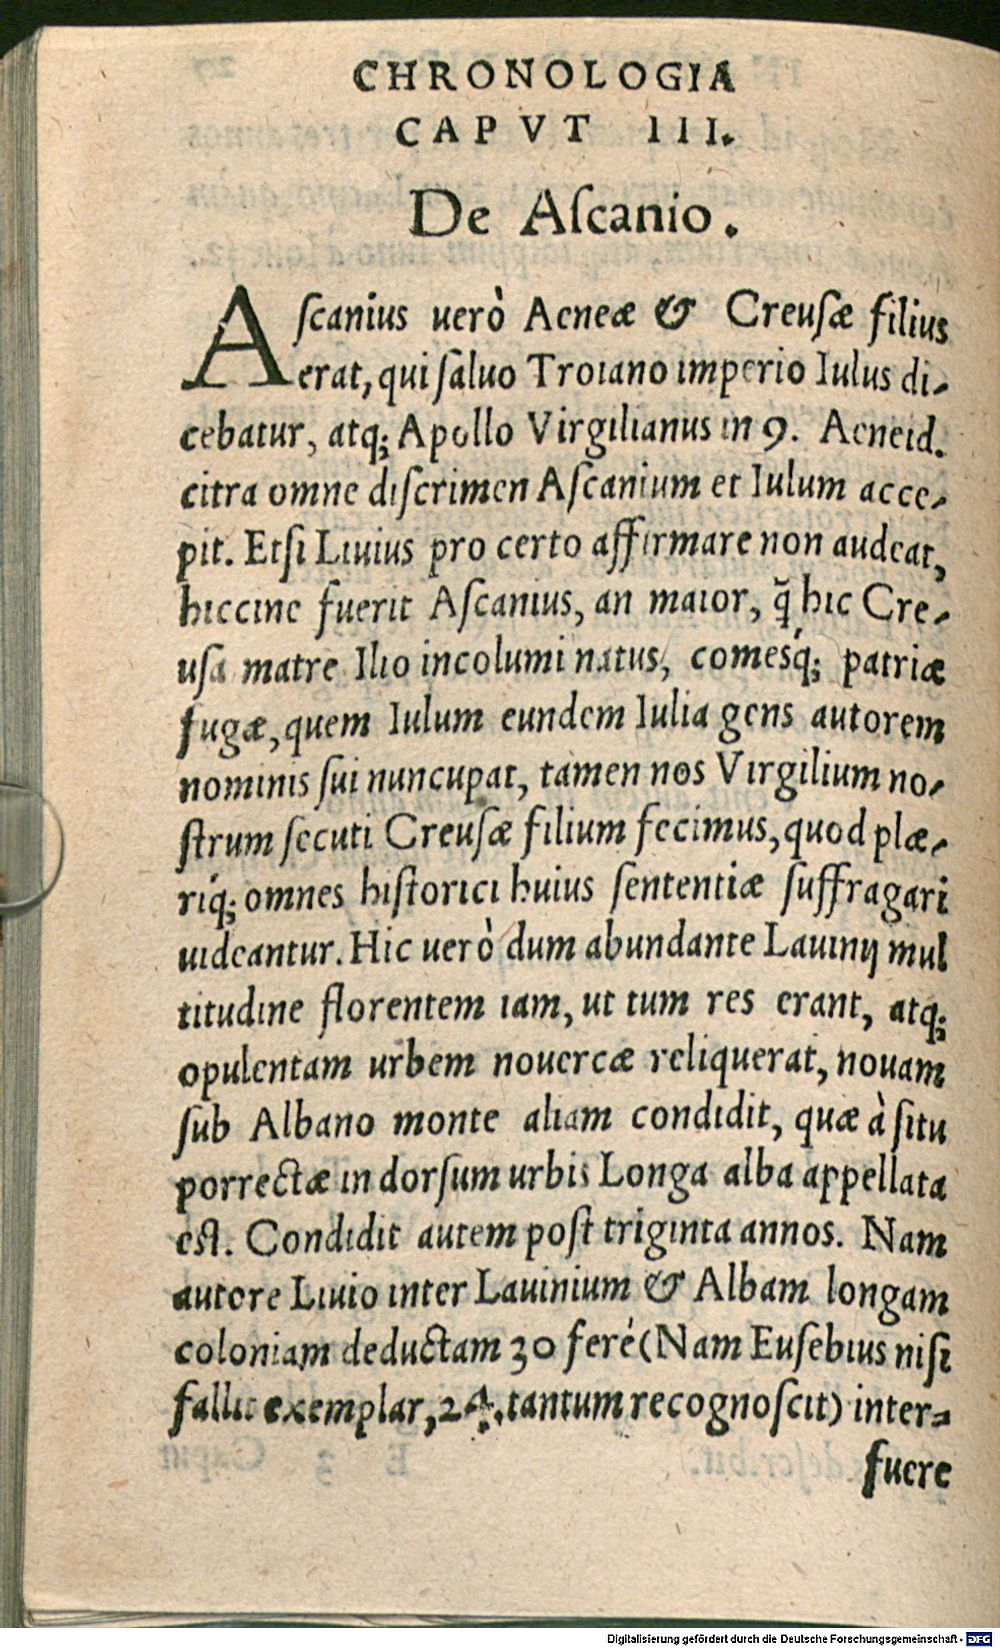 CHRONOLOGIA
CAPVT III.
De Aſcanio.
Aſcanius uerò Aeneæ & Creuſæ filius
erat, qui ſaluo Troiano imperio Iulus di-
cebatur, atq; Apollo Virgilianus in 9. Aeneid.
citra omne diſcrimen Aſcanium et Iulum acce-
pit. Etſi Liuius pro certo affirmare non audeat,
hiccine fuerit Aſcanius, an maior, q̃ hic Cre-
uſa matre Ilio incolumi natus, comesq́; patriæ
fugæ, quem Iulum eundem Iulia gens autorem
nominis ſui nuncupat, tamen nos Virgilium no-
ſtrum ſecuti Creuſæ filium fecimus, quod plæ-
riq́; omnes hiſtorici huius ſententiæ ſuffragari
uideantur. Hic uerò dum abundante Lauinij mul
titudine florentem iam, ut tum res erant, atq;
opulentam urbem nouercæ reliquerat, nouam
ſub Albano monte aliam condidit, quæ à ſitu
porrectæ in dorſum urbis Longa alba appellata
eſt. Condidit autem poſt triginta annos. Nam
autore Liuio inter Lauinium & Albam longam
coloniam deductam 30 ferè (Nam Euſebius niſi
fallit exemplar, 24. tantum recognoſcit) inter-
fuere
Digitalisierung gefördert durch die Deutsche Forschungsgemeinschaft - DFG